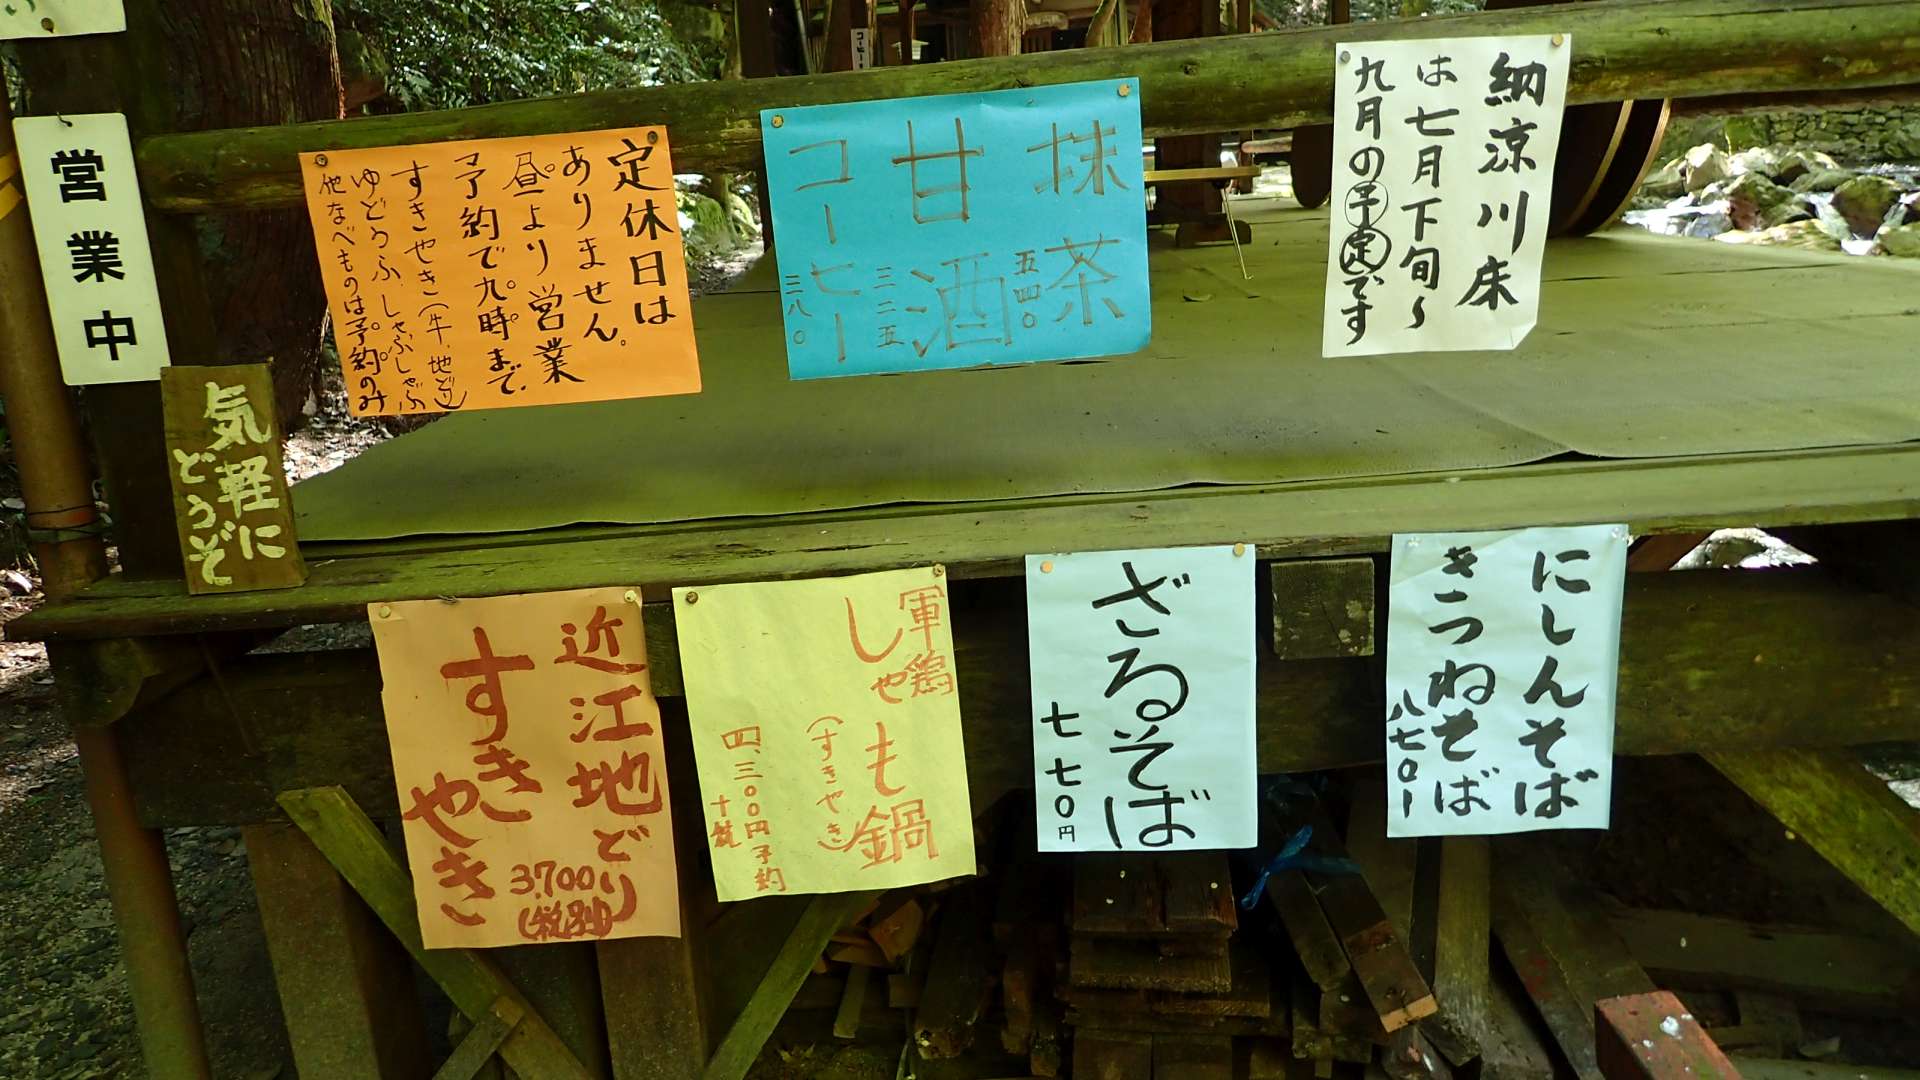 営業中
気軽に
どうぞ
定休日は
ありません。
昼より営業
予約で九時まで
すきやき(牛、地どり)
ゆどうふ、しゃぶしゃぶ
他なべものは予約のみ
抹茶
五四〇
甘酒
三二五
コーヒー
三八〇
納涼川床
は七月下旬~
九月の予定です
近江地どり
すき
やき
3,700
(税別)
軍鶏
しゃも鍋
(すきやき)
四、三〇〇円予約
ざるそば
七七〇円
にしんそば
きつねそば
八七〇ー
コーヒー